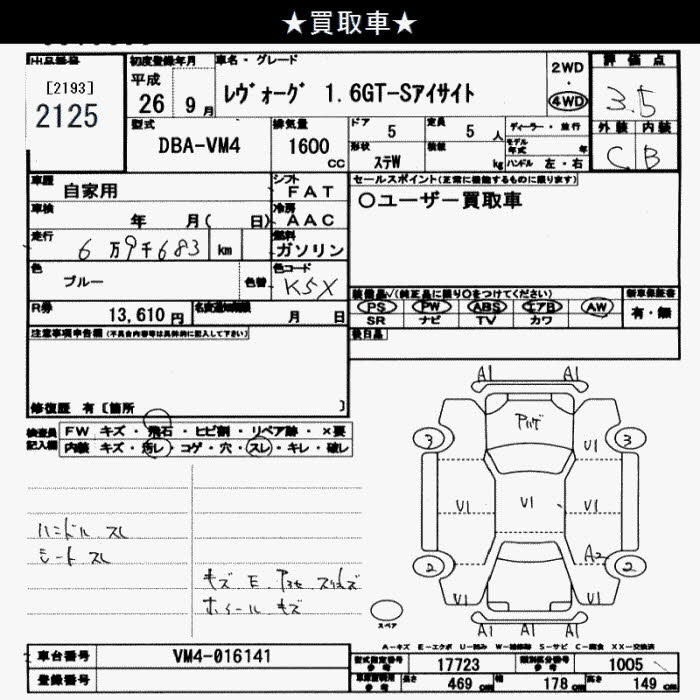 ★買取車★
出品番号
[2193]
2125
初度登録年月
平成
26 9 月
車名・グレード
レヴォーグ 1.6GT-Sアイサイト
2WD
・
4WD
評価点
3.5
外装 内装
C B
型式
DBA-VM4
排気量
1600
CC
ドア
5
定員
5 人
形状
ステW
積載
kg
ディーラー・並行
モデル年式 年
ハンドル 左・右
車歴
自家用
シフト
FAT
車検
年 月( 日)
冷房
AAC
走行
6万9千683 km
燃料
ガソリン
色
ブルー
色替
色コード
K5X
R券
13,610 円
名変通知期限
月 日
セールスポイント(正常に機能するものに限ります)
○ユーザー買取車
装備品√(純正品に限り○をつけてください)
PS PW ABS エアB AW
SR ナビ TV カワ
新車保証書
有・無
後日品
注意事項申告欄(不具合内容等は具体的に記入して下さい)
修復歴 有〔箇所 〕
検査員
記入欄
FW キズ・飛石・ヒビ割・リペア跡・×要
内装 キズ・汚レ・コゲ・穴・スレ・キレ・破レ
ハンドル スレ
シート スレ
ホイール キズ
A1 A1
3 3
U1
U1 U1 U1
A2
2 2
U1 U1
A1 A1 A1
スペア
A-キズ E-エクボ U-凹み W-補修跡 S-サビ C-腐食 XX-交換済
車台番号
VM4-016141
登録番号
型式指定番号
参考
17723
類別区分番号
参考
1005
車両寸法用
参考
長さ 469 cm
幅 178 cm
高さ 149 cm